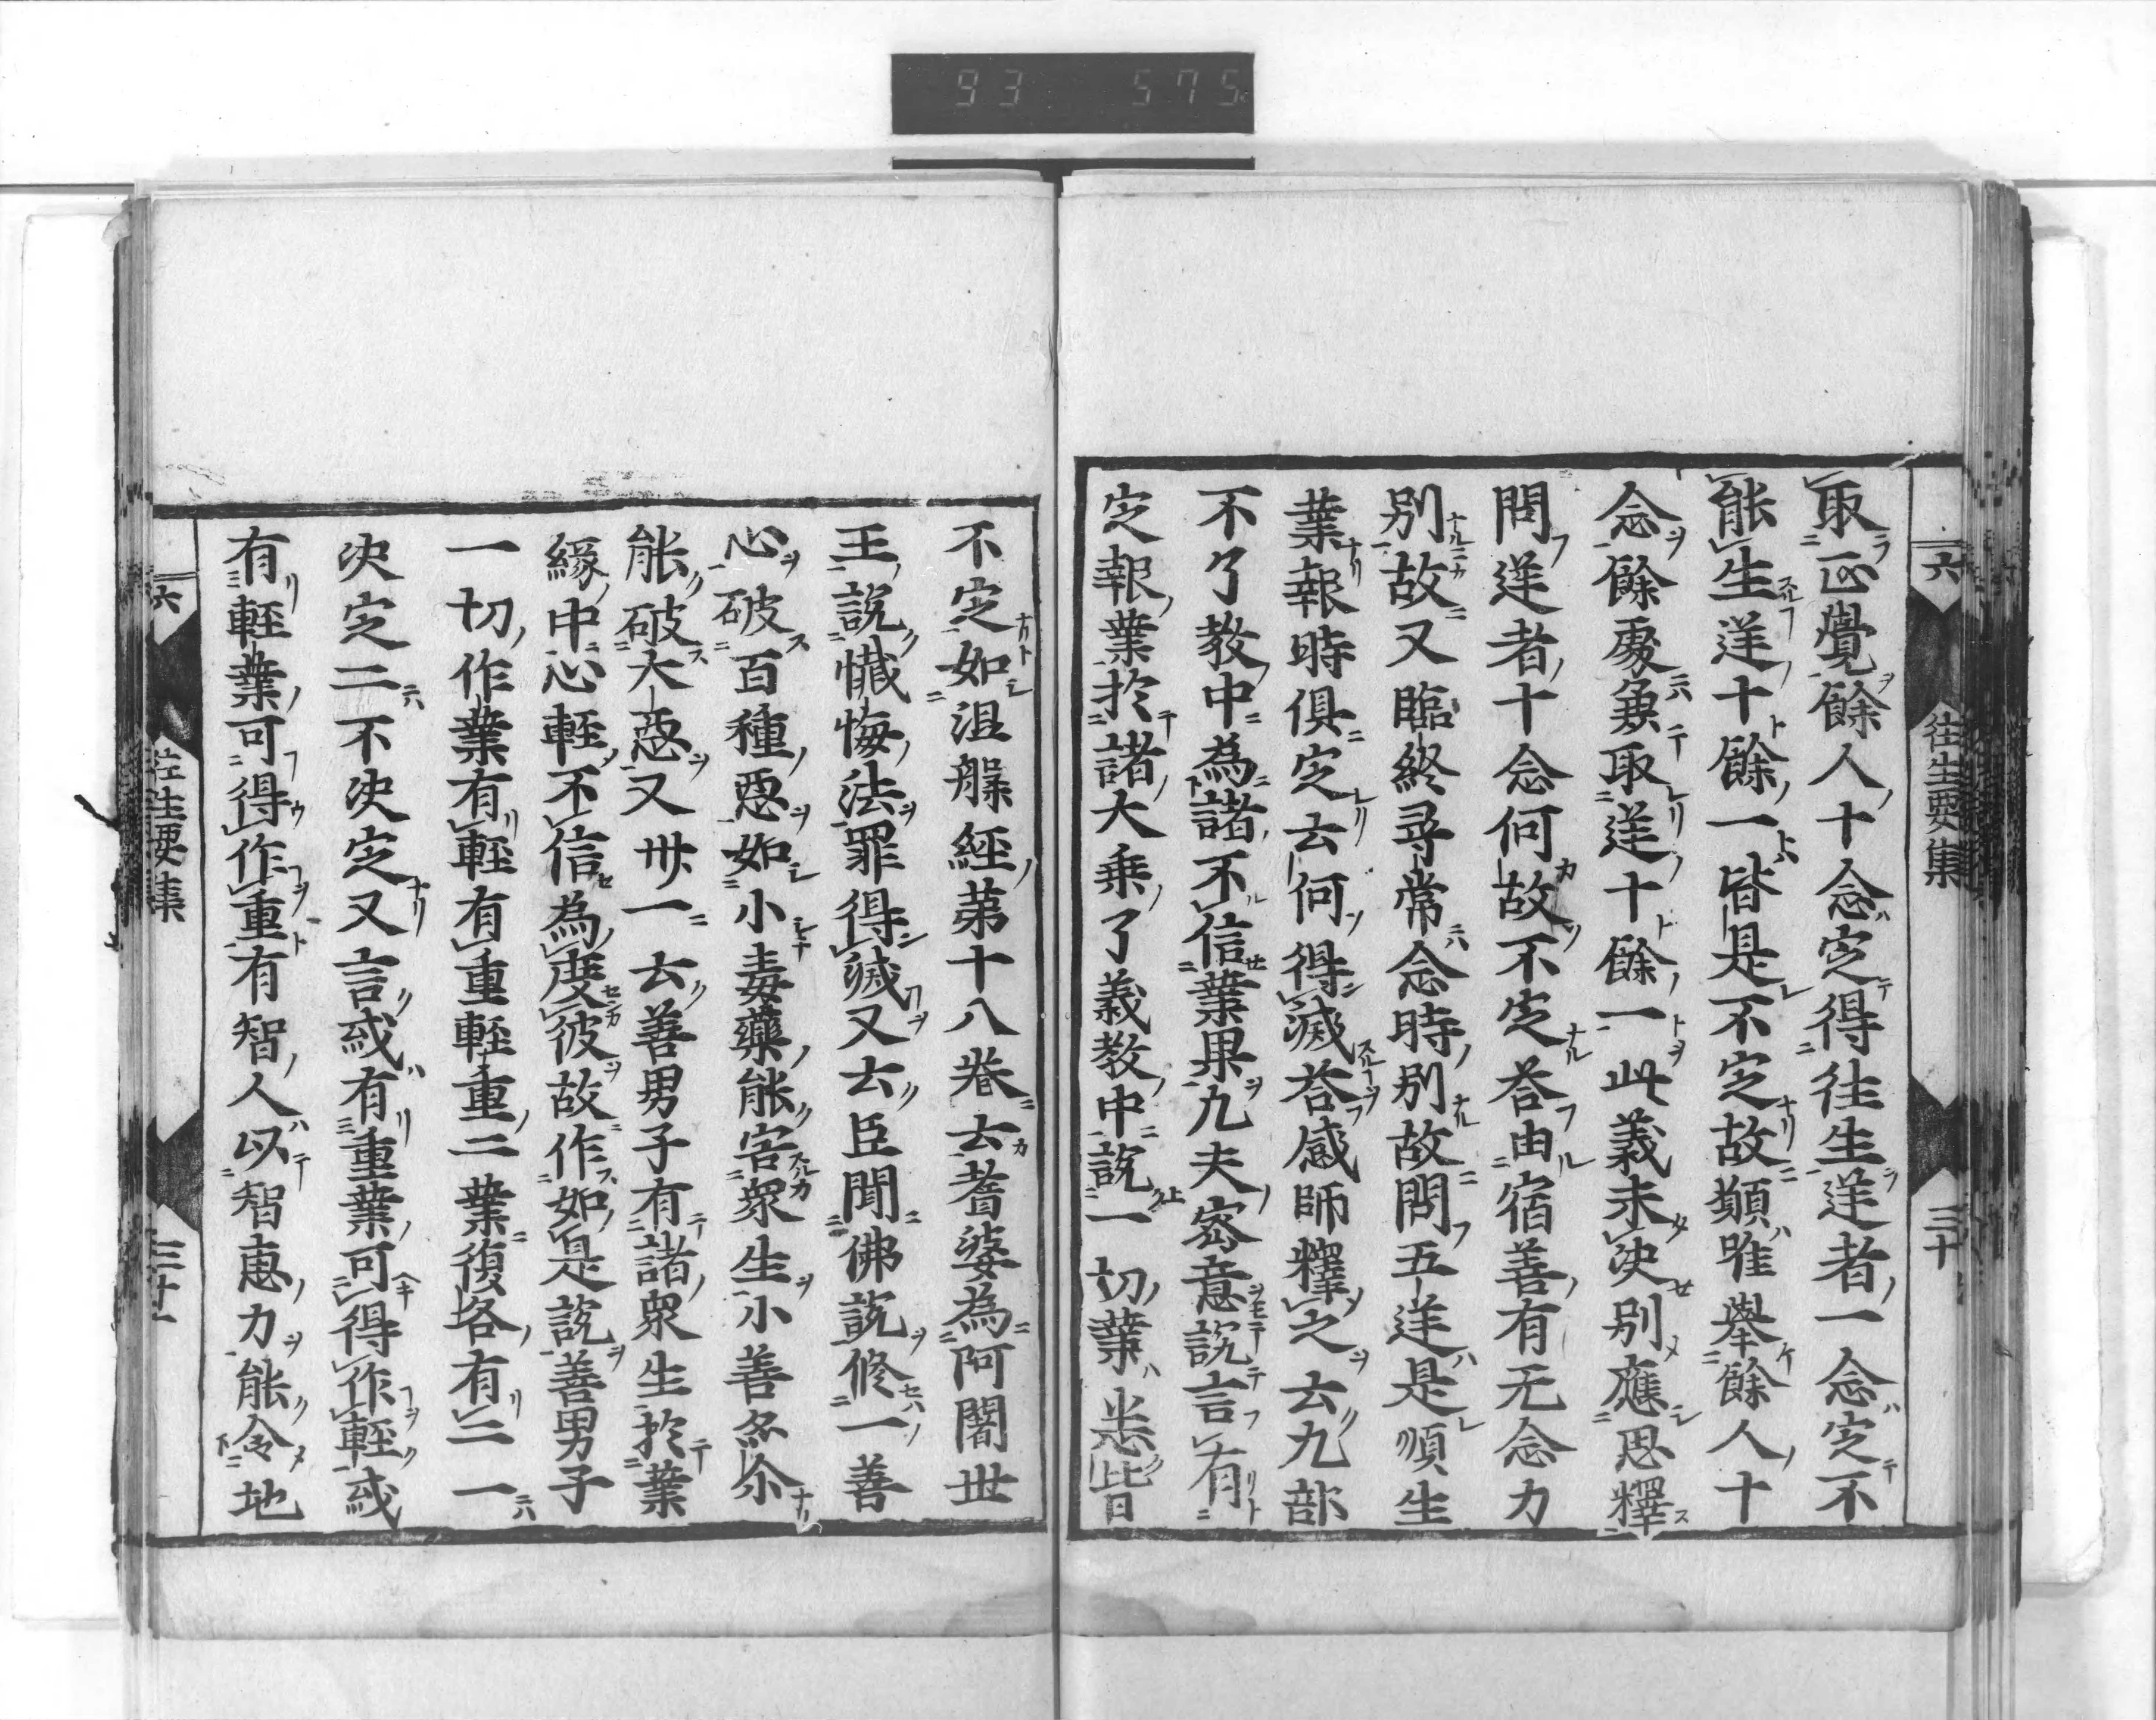 93 575
六 往生要集 三十
取正覺餘人十念定得往生逆者一念定不
能生逆十餘一皆是不定故願唯擧餘人十
念餘處兼取逆十餘一此義未決別應思釋
問逆者十念何故不定荅由宿善有无念力
別故又臨終尋常念時別故問五逆是順生
業報時俱定云何得滅荅感師釋之云九部
不了教中為諸不信業果凡夫密意說言有
定報業於諸大乘了義教中說一切業悉皆
不定如涅槃經第十八卷云耆婆為阿闍世
王說懺悔法罪得滅又云臣聞佛說修一善
心破百種惡如小毒藥能害衆生小善亦尒
能破大惡又卅一云善男子有諸衆生於業
緣中心輕不信為度彼故作如是說善男子
一切作業有輕有重輕重二業復各有二一
決定二不決定又言或有重業可得作輕或
有輕業可得作重有智人以智惠力能令地
六 往生要集 三十一